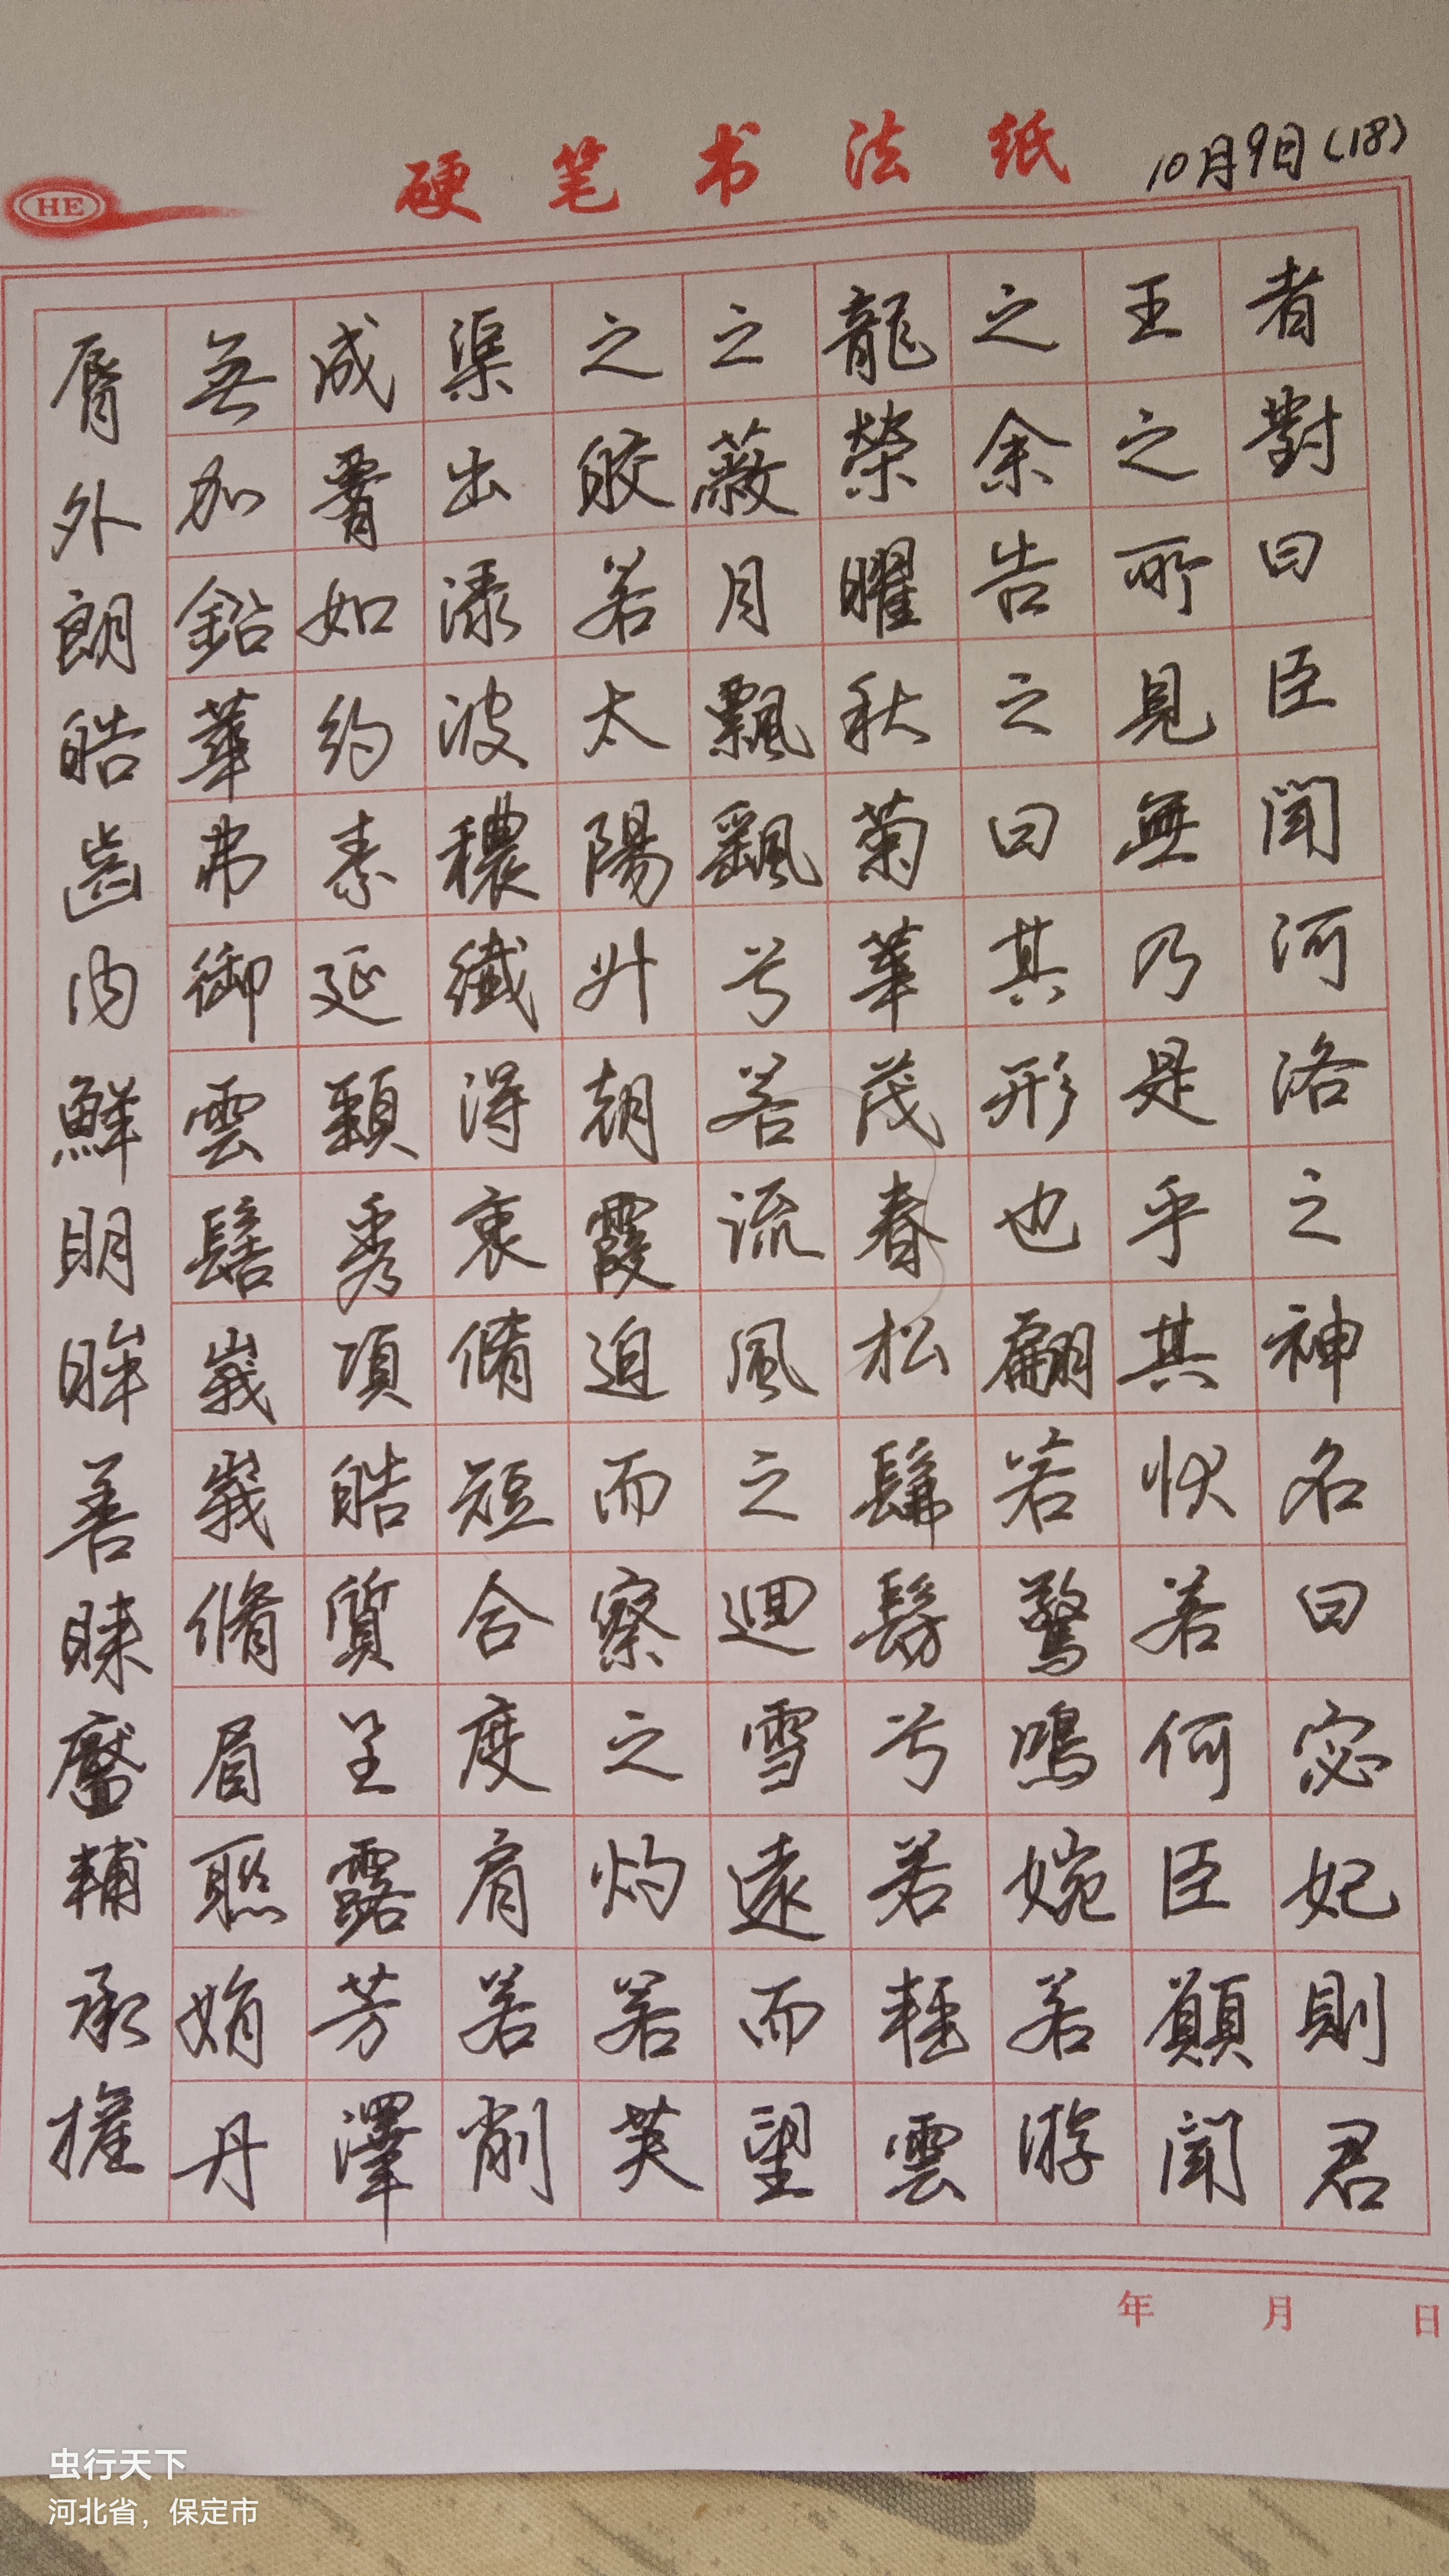 硬笔书法纸
10月9日(18)
HE
者對曰臣聞河洛之神名曰宓妃則君
王之所見無乃是乎其狀若何臣願聞
之余告之曰其形也翩若驚鴻婉若游
龍榮曜秋菊華茂春松髣髴兮若輕雲
之蔽月飄飖兮若流風之迴雪遠而望
之皎若太陽升朝霞迫而察之灼若芙
渠出淥波穠纖得衷脩短合度肩若削
成署如約素延頸秀項皓質呈露芳澤
無加鉛華弗御雲髻峩峩脩眉聯娟丹
脣外朗皓齒內鮮明眸善睞靨輔承權
年 月 日
虫行天下
河北省，保定市